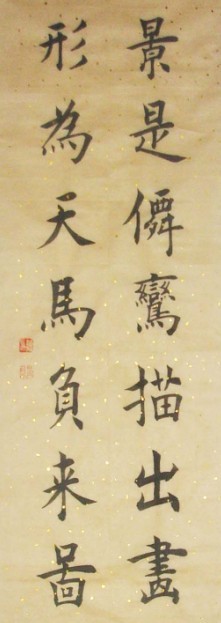 景是僊鸞描出畫
形為天馬負来啚